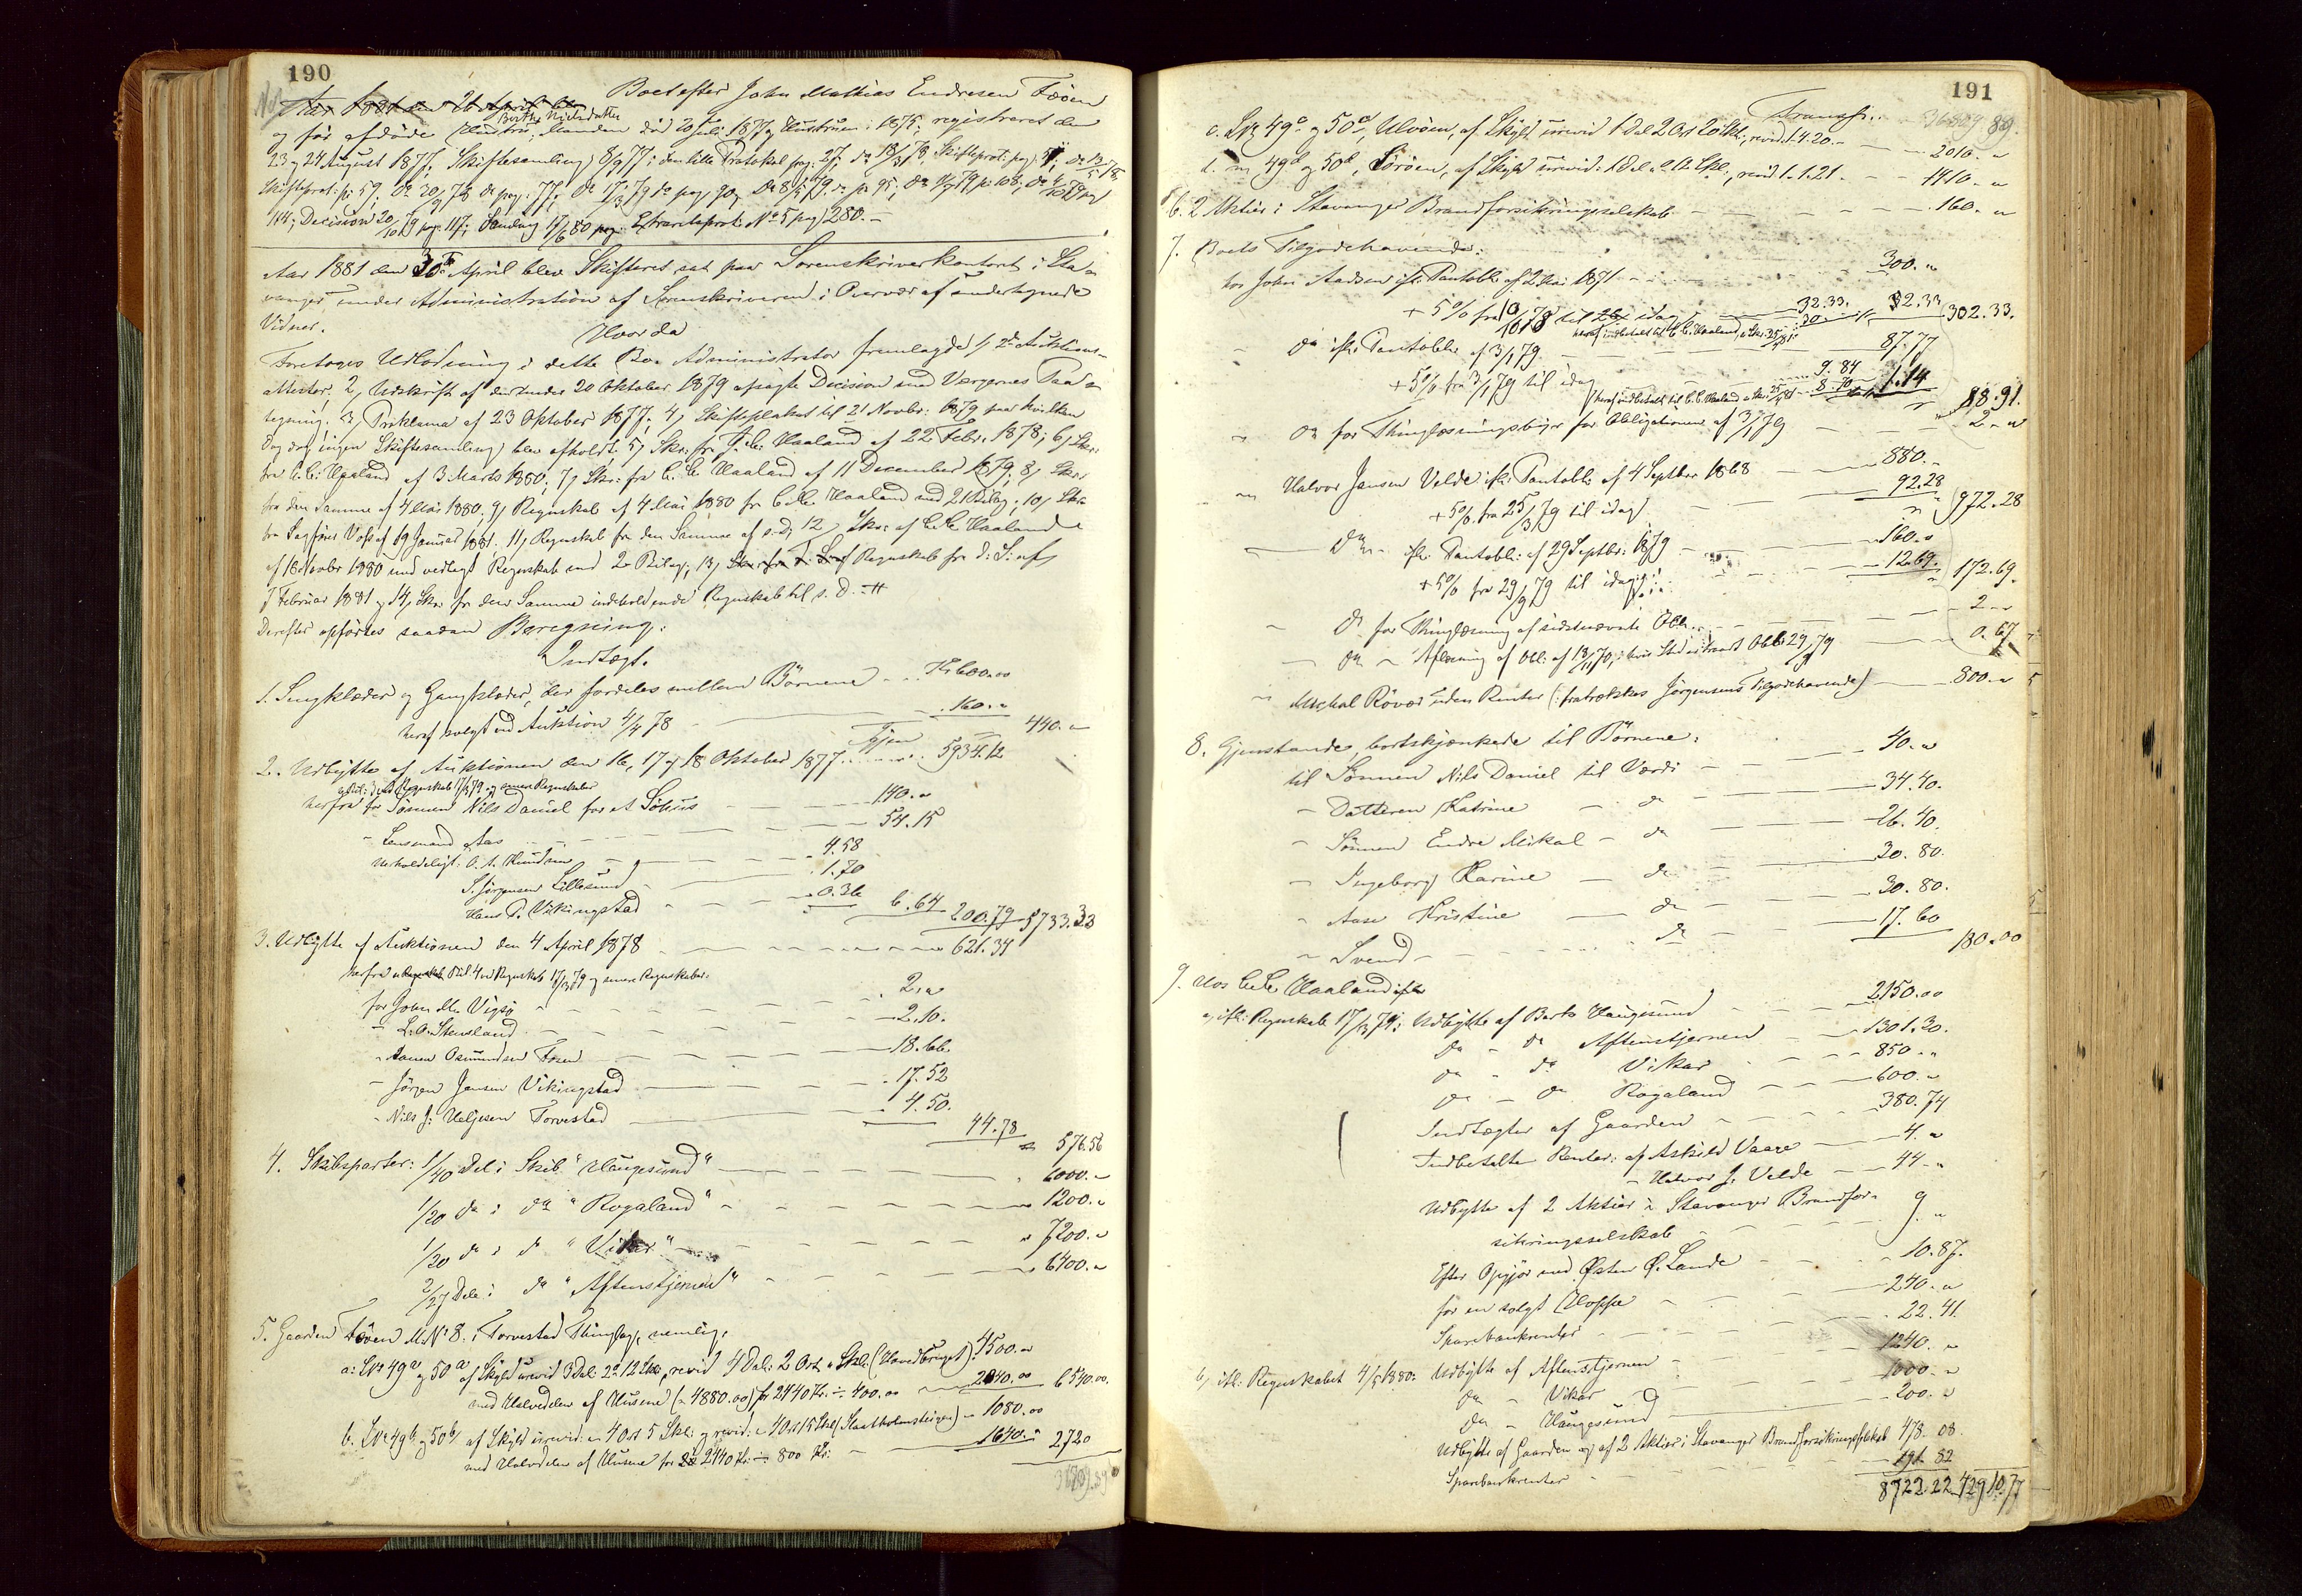 190
Boet efter John Mathias Endresen Føøen
Aar 1881 den 26 April blev
og før afdøde Hustru, Berthe Nielsdatter Manden død 20 Juli 1877 og Hustruen i 1875; registreret den
23 og 24 August 1877; Skiftesamling 8/9 77 i den lille Protokol pag. 27;
Skifteprot: p. 59; Do 30/9 78 do pag. 77; Do 17/3 79 do pag. 90, Do 8/5 79 do p. 95, Do
114; Decision 20/10 79 pag. 117; Samling 17/6 80 pag: Extraretsprot: No 5 pag 280. –
Aar 1881 den 30te April blev Skifteret sat paa Sorenskriverkontoret i Sta-
vanger under Administration af Sorenskriveren i Overvær af undertegnede
Vidner.
Hvorda
Foretoges Udlodning i dette Bo. Administrator fremlagde 1, 2de Auktions-
atester, 2, Udskrift af den under 20 Oktober 1879 afsagte Decision med Værgernes Paa-
tegning. 3, Proklama af 23 Oktober 1877; 4, Skifteplakat til 21 Novbr: 1879 paa hvilken
Dag dog ingen Skiftesamling blev afholdt. 5, Skr. fra C. C. Haaland af 22 Febr. 1878; 6, Skr:
fra C. C. Haaland af 3 Marts 1880; 7, Skr: fra C. C. Haaland af 11 December 1879; 8, Skr:
fra den Samme af 4 Mai 1880; 9, Regnskab af 4 Mai 1880 fra C. C. Haaland med 21 Bilag; 10, Skr:
fra Sagfører Voss af 19 Januar 1881. 11, Regnskab fra den Samme af s. d; 12, Skr: af C. C. Haaland
af 16 Novbr 1880 med vedlagt Regnskab med 2 Bilag; 13, Skr: fra Regnskab fra d: S: af
7 Februar 1881 og 14, Skr: fra den Samme indeholdende Regnskab til s. D.
Derefter opførtes saadan Beregning:
Indtægt.
1. Sengklæder og Gangklæder, der fordeles mellem Børnene Kr 600.00
heraf solgt ved Auktion 4/4 78 160. " 440. "
Igjen
2. Udbytte af Auktionen den 16, 17 og 18 Oktober 1877 5934.12
herfra for Sønnen Nils Daniel for et Søhus 140. "
" Lensmand Aas 54.15
Uerholdeligt: O. A. Knudsen 4.58
S. Jørgensen Lillesund 1.70
Hans P. Vikingstad 0.36 6.64 200.79 5733.33
3. Udbytte af Auktionen den 4 April 1878 621.34
herfra Bil. 4 ved Regnskab 17/3 79 og senere Regnskaber:
for John M. Vigsø 2. "
" L. O. Stensland 2.10.
" Aanen Osmundsen Føøen 18.66
" Jørgen Jansen Vikingstad 17.52
" Nils J. Heljesen Torvestad 4.50. 44.78 576.56
4. Skibsparter: 1/40 Del i Skib "Haugesund" 6000. "
1/20 do i do "Rogaland" 1200. "
1/20 do i do "Vikar" 7200. "
2/27 Dele i do "Aftenstjernen" 6400. "
5. Gaarden Føøen M.No 8. i Torvestad Thinglag, nemlig:
a: LNo 49a og 50a af Skyld urevid 3 Dal: 2 12 Skl, revid 4 Dal: 2 Ort " Skl: (Hovedbruget) 4500. "
med Halvdelen af Husene (= 4880.00) for 2440 Kr. ÷ 400.00 2040.00 6540.00.
b. LNo 49b og 50b, af Skyld urevid: " 4 Ort 5 Skl: og revid: " 4 Ort 15 Skl 1080.00
med Halvdelen af Husene for 2440 Kr: ÷ 800 Kr: 1640. " 2720
191
Transp:
c. LNo 49c og 50c, Ulvøen, af Skyld urevid 1 Dal 2 Ort 20 Skl:, revid. 1.4.20. 2010. "
d. " 49d og 50d, Sørøen, af Skyld urevid: 1 Del " 12 Skl:, revid 1. 1. 21. 1410. "
6. 2 Aktier i Stavanger Brandforsikringsselskab 160. "
7. Boets Tilgodehavende:
hos John Aadsen ifl. Pantobl: af 2 Mai 1871 300. "
+ 5% fra til idag 32.33. 32.33 302.33.
heraf indbetalt til C. C. Haaland 30.
" do ifl: Pantobl: af 3/1 79 87.77
+ 5% fra 3/1 79 til idag 9.84
heraf indbetalt til C. C. Haaland 8.70 1.14 88.91.
" do for Thinglæsningsgebyr for Obligationen af 3/1 79 2. "
" Halvor Jansen Velde ifl: Pantobl: af 4 Septbr 1868 880. "
+ 5% fra 25/3 79 til idag 92.28 972.28
" do " ifl: Pantobl: af 29 Septbr: 1879 160. "
+ 5% fra 29/9 79 til idag 12.69. 172.69.
" do for Thinglæsning af sidstnævnte Obl: 2. "
" do " Aflæsning af Obl: af 13/11 70, i hvis Sted er traadt Obl: 29/9 79 0.67
" Michal Røvær uden Renter (: fratrækkes Jørgensens Tilgodehavende) 800. "
8. Gjenstande, bortskjænkede til Børnene:
til Sønnen Nils Daniel til Værdi 40. "
" Datteren Katrine do 34.40.
" Sønnen Endre Mikal do 26.40.
" Ingeborg Karine do 30.80.
" Aase Kristine do 30.80.
" Svend do 17.60 180.00
9. Hos C. C. Haaland ifl:
a, ifl: Regnskab 17/3 79: Udbytte af Bark Haugesund 2150.00
do " do Aftenstjernen 1301.30.
do " do Vikar 850. "
do " do Rogaland 600. "
Indtægter af Gaarden 380.74
Indbetalte Renter: af Askild Vaage 4. "
" Halvor J. Velde 44. "
Udbytte af 2 Aktier i Stavanger Brandfor-
sikringsselskab 9. "
Efter Opgjør med Østen Ø. Lande 10.87.
for en solgt Hoppe 240. "
Sparebankrenter 22.41.
b, ifl: Regnskabet 4/5 1880: Udbytte af Aftenstjernen 1240. "
do " Vikar 1000. "
do " Haugesund 200. "
Udbytte af Gaarden og af 2 Aktier i Stavanger Brandforsikringsselskab 478.08.
Sparebankrenter 191.82
8722.22 42910.77